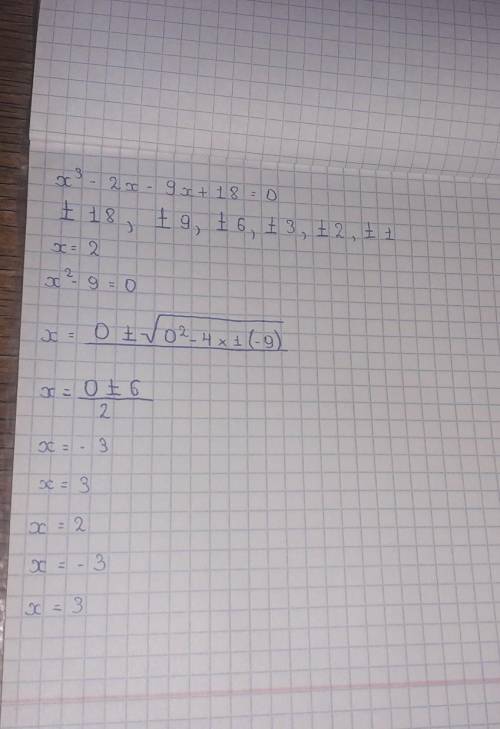 x³ - 2x - 9x + 18 = 0
± 18, ± 9, ± 6, ± 3, ± 2, ± 1
x = 2
x² - 9 = 0
x = 0 ± √(0² - 4 × 1 (-9))
x = 0 ± 6 / 2
x = - 3
x = 3
x = 2
x = - 3
x = 3